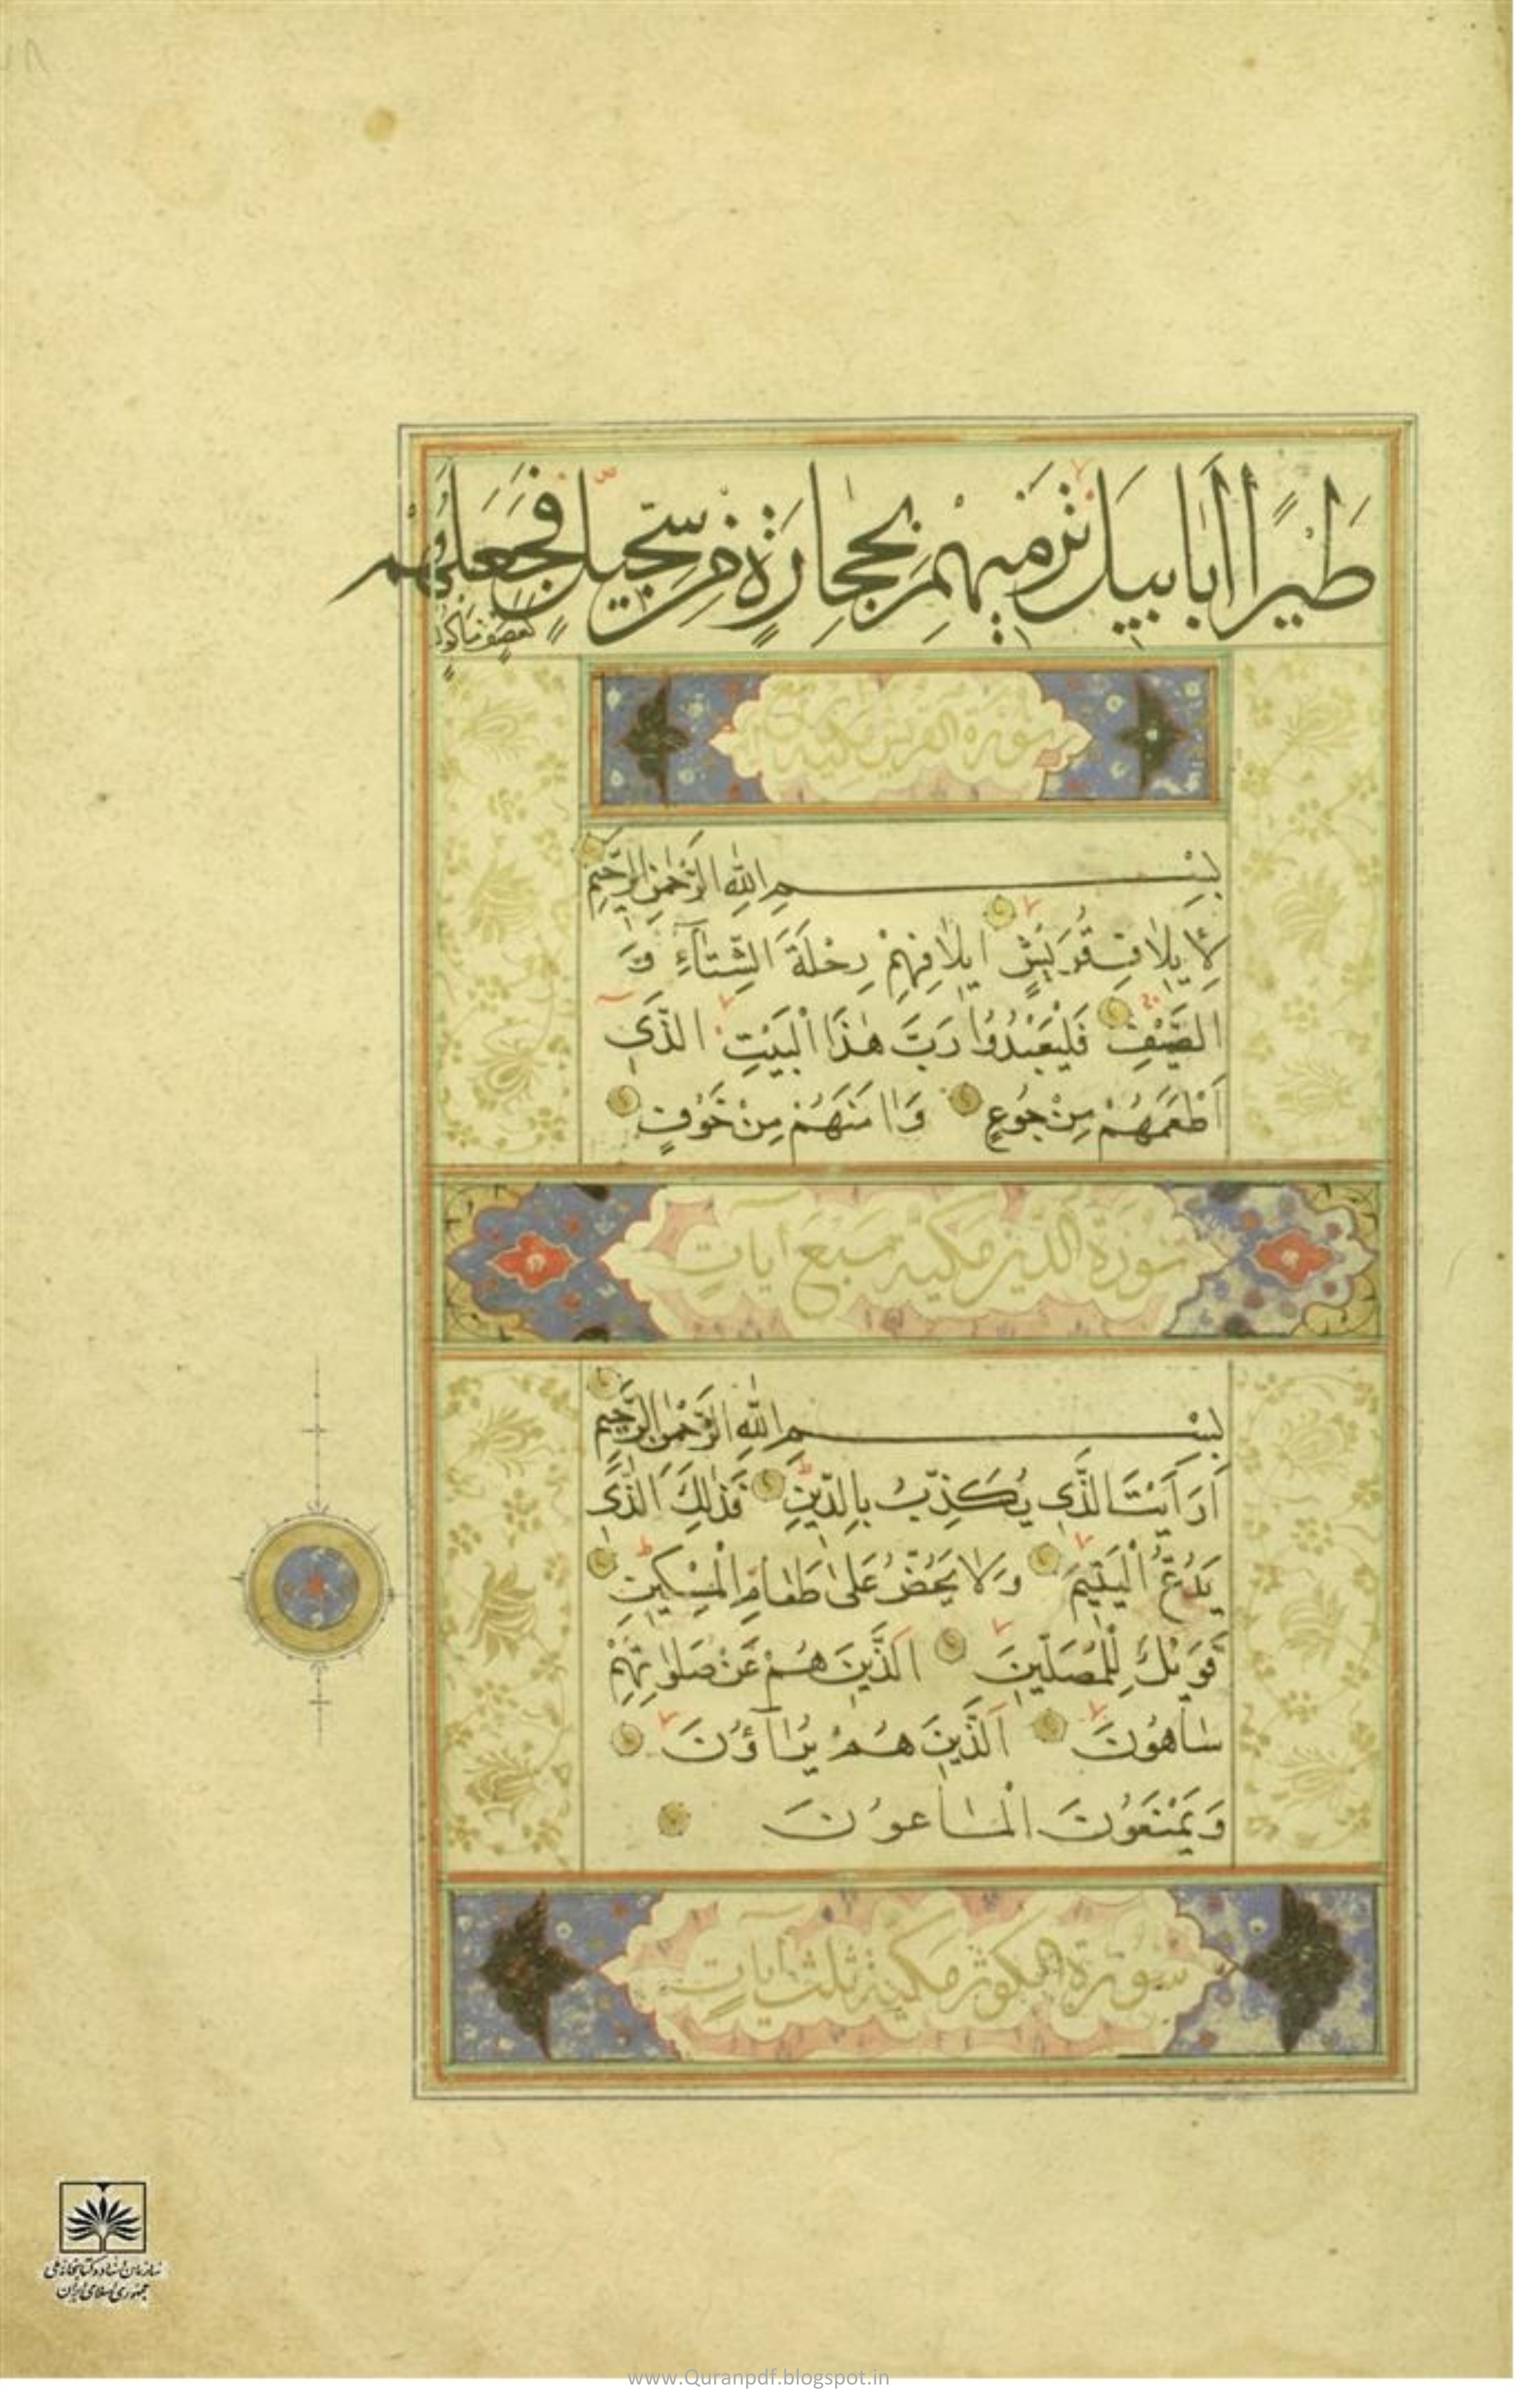 طَيْرًا أَبَابِيلَ تَرْمِيهِمْ بِحِجَارَةٍ مِنْ سِجِّيلٍ فَجَعَلَهُمْ
كَعَصْفٍ مَأْكُولٍ
سورة القريش مكية
بِسْمِ اللهِ الرَّحْمٰنِ الرَّحِيمِ
لِإِيلَافِ قُرَيْشٍ إِيلَافِهِمْ رِحْلَةَ الشِّتَآءِ وَ
الصَّيْفِ فَلْيَعْبُدُوا رَبَّ هٰذَا الْبَيْتِ الَّذِى
أَطْعَمَهُمْ مِنْ جُوعٍ وَاٰمَنَهُمْ مِنْ خَوْفٍ
سورة الدين مكية سبع آيات
بِسْمِ اللهِ الرَّحْمٰنِ الرَّحِيمِ
أَرَأَيْتَ الَّذِى يُكَذِّبُ بِالدِّينِ فَذٰلِكَ الَّذِى
يَدُعُّ الْيَتِيمَ وَلَا يَحُضُّ عَلٰى طَعَامِ الْمِسْكِينِ
فَوَيْلٌ لِلْمُصَلِّينَ اَلَّذِينَ هُمْ عَنْ صَلٰوتِهِمْ
سَاهُونَ اَلَّذِينَ هُمْ يُرَآؤُنَ
وَيَمْنَعُونَ الْمَاعُونَ
سورة الكوثر مكية ثلث آيات
سازمان اسناد و کتابخانه ملی
جمهوری اسلامی ایران
www.Quranpdf.blogspot.in